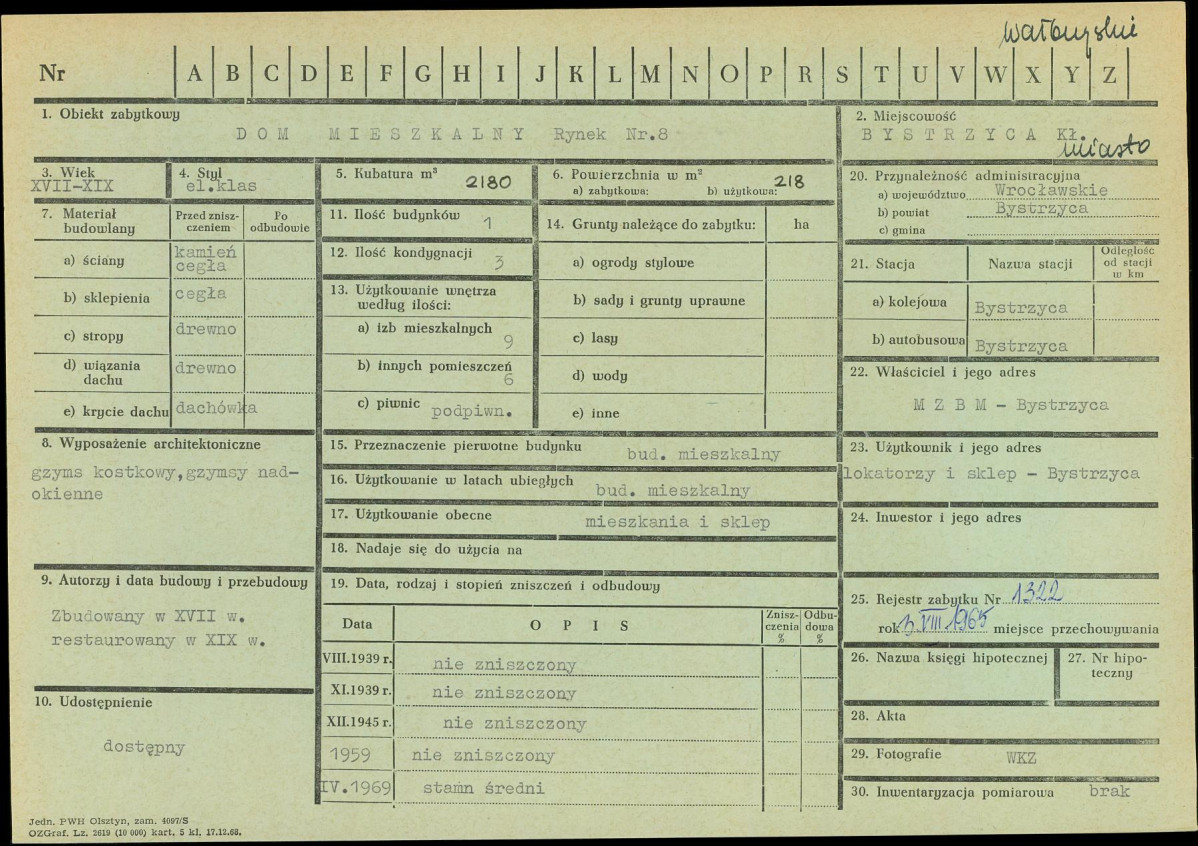 wałbrzyskie
Nr A B C D E F G H I J K L M N O P R S T U V W X Y Z
1. Obiekt zabytkowy
DOM MIESZKALNY Rynek Nr.8
2. Miejscowość
BYSTRZYCA Kł.
miasto
3. Wiek
XVII-XIX
4. Styl
el.klas
5. Kubatura m³ 2180
6. Powierzchnia w m²
a) zabytkowa: b) użytkowa: 218
7. Materiał budowlany
Przed zniszczeniem
Po odbudowie
a) ściany kamień cegła
b) sklepienia cegła
c) stropy drewno
d) wiązania dachu drewno
e) krycie dachu dachówka
8. Wyposażenie architektoniczne
gzyms kostkowy,gzymsy nad-
okienne
9. Autorzy i data budowy i przebudowy
Zbudowany w XVII w.
restaurowany w XIX w.
10. Udostępnienie
dostępny
11. Ilość budynków 1
12. Ilość kondygnacji 3
13. Użytkowanie wnętrza
według ilości:
a) izb mieszkalnych 9
b) innych pomieszczeń 6
c) piwnic podpiwn.
14. Grunty należące do zabytku: ha
a) ogrody stylowe
b) sady i grunty uprawne
c) lasy
d) wody
e) inne
15. Przeznaczenie pierwotne budynku bud. mieszkalny
16. Użytkowanie w latach ubiegłych bud. mieszkalny
17. Użytkowanie obecne mieszkania i sklep
18. Nadaje się do użycia na
19. Data, rodzaj i stopień zniszczeń i odbudowy
Data OPIS Zniszczenia % Odbudowa %
VIII.1939 r. nie zniszczony
XI.1939 r. nie zniszczony
XII.1945 r. nie zniszczony
1959 nie zniszczony
IV.1969 stamn średni
20. Przynależność administracyjna
a) województwo Wrocławskie
b) powiat Bystrzyca
c) gmina
21. Stacja Nazwa stacji Odległość od stacji w km
a) kolejowa Bystrzyca
b) autobusowa Bystrzyca
22. Właściciel i jego adres
MZBM - Bystrzyca
23. Użytkownik i jego adres
lokatorzy i sklep - Bystrzyca
24. Inwestor i jego adres
25. Rejestr zabytku Nr 1322
rok VIII 1965 miejsce przechowywania
26. Nazwa księgi hipotecznej
27. Nr hipo-
teczny
28. Akta
29. Fotografie WKZ
30. Inwentaryzacja pomiarowa brak
Jedn. PWH Olsztyn, zam. 4097/S
OZGraf. Lz. 2619 (10 000) kart, 5 kl. 17.12.68.